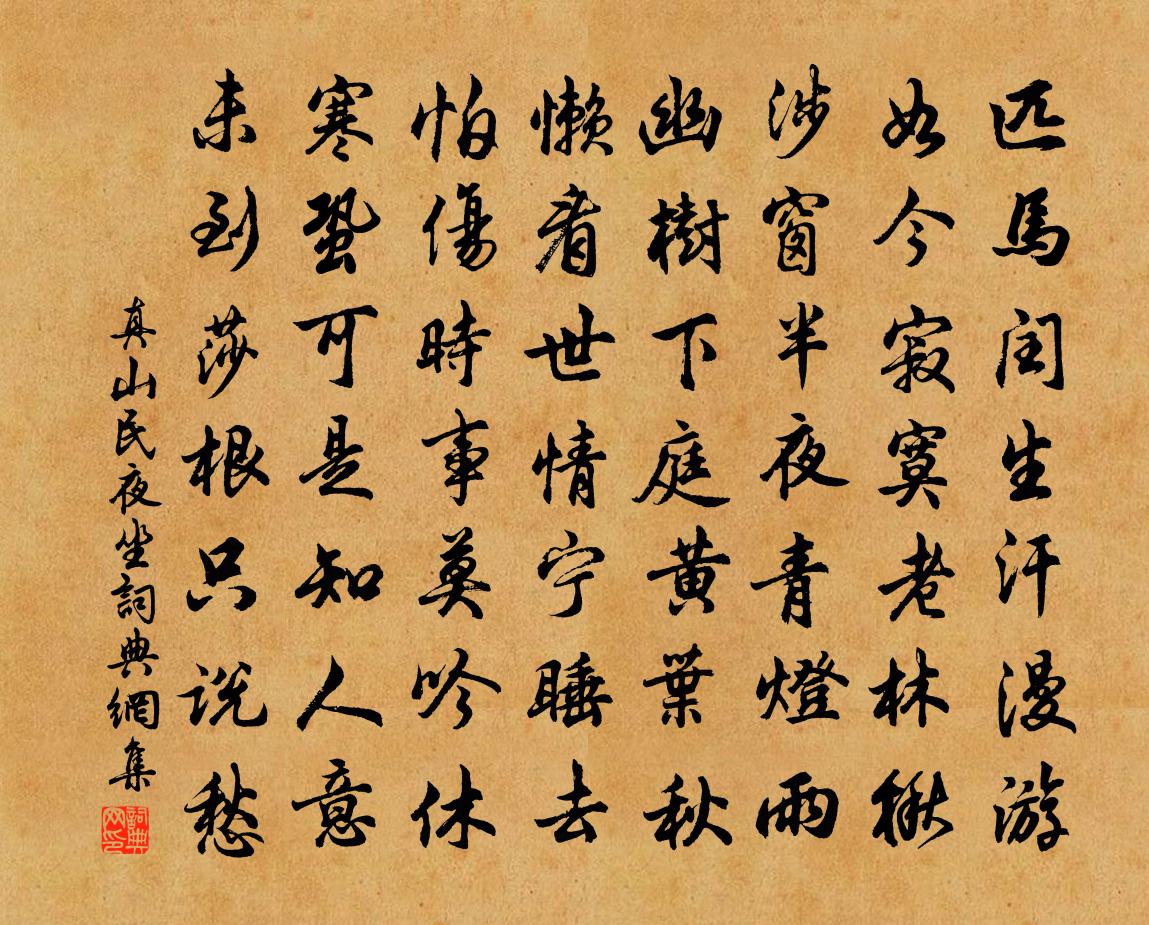 匹馬閏生汗漫游
如今寂寞老林楸
涉窗半夜青燈雨
幽樹下庭黄葉秋
懶看世情宁睡去
怕傷時事莫吟休
寒蛩可是知人意
未到莎根只说愁
真山民夜坐詞典網集
詞典网印